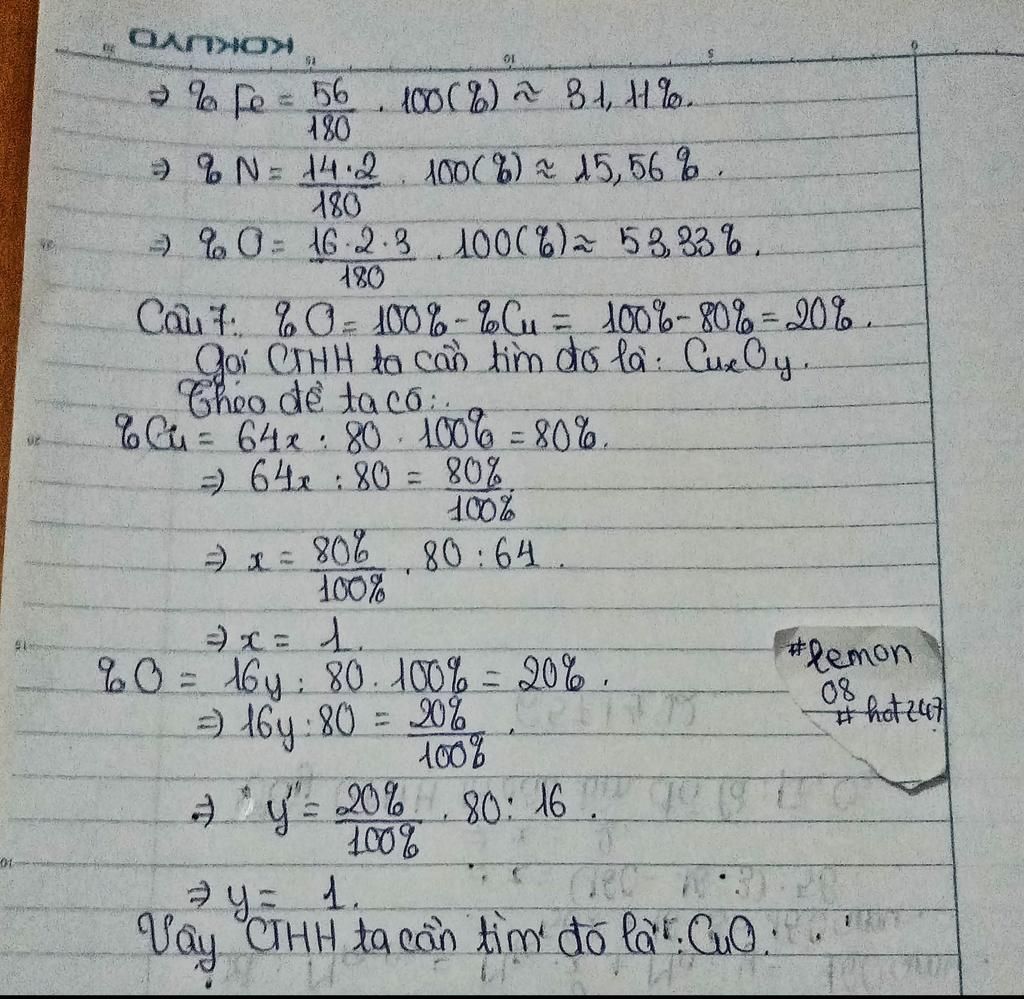 KOKUYO
15 10 5 0
⇒ % Fe = 56/180 . 100(%) ≈ 31,11%.
⇒ % N = 14.2/180 . 100(%) ≈ 15,56%.
⇒ % O = 16.2.3/180 . 100(%) ≈ 53,33%.
Câu 7: % O = 100% - %Cu = 100% - 80% = 20%.
Gọi CTHH ta cần tìm đó là: CuxOy.
Theo đề ta có:
% Cu = 64x : 80 . 100% = 80%.
⇒ 64x : 80 = 80%/100%
⇒ x = 80%/100% . 80 : 64.
⇒ x = 1.
% O = 16y : 80 . 100% = 20%.
⇒ 16y : 80 = 20%/100%.
⇒ y = 20%/100% . 80 : 16.
⇒ y = 1.
Vậy CTHH ta cần tìm đó là: CuO.
#lemon
08
# hot247